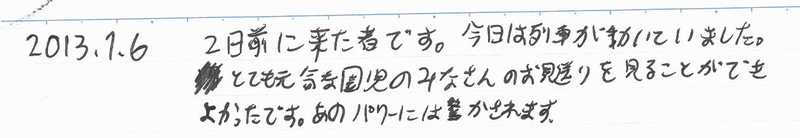 2013.7.6 2日前に来た者です。今日は列車が動いていました。
とても元気な園児のみなさんのお見送りを見ることができ
よかったです。あのパワーには驚かされます。